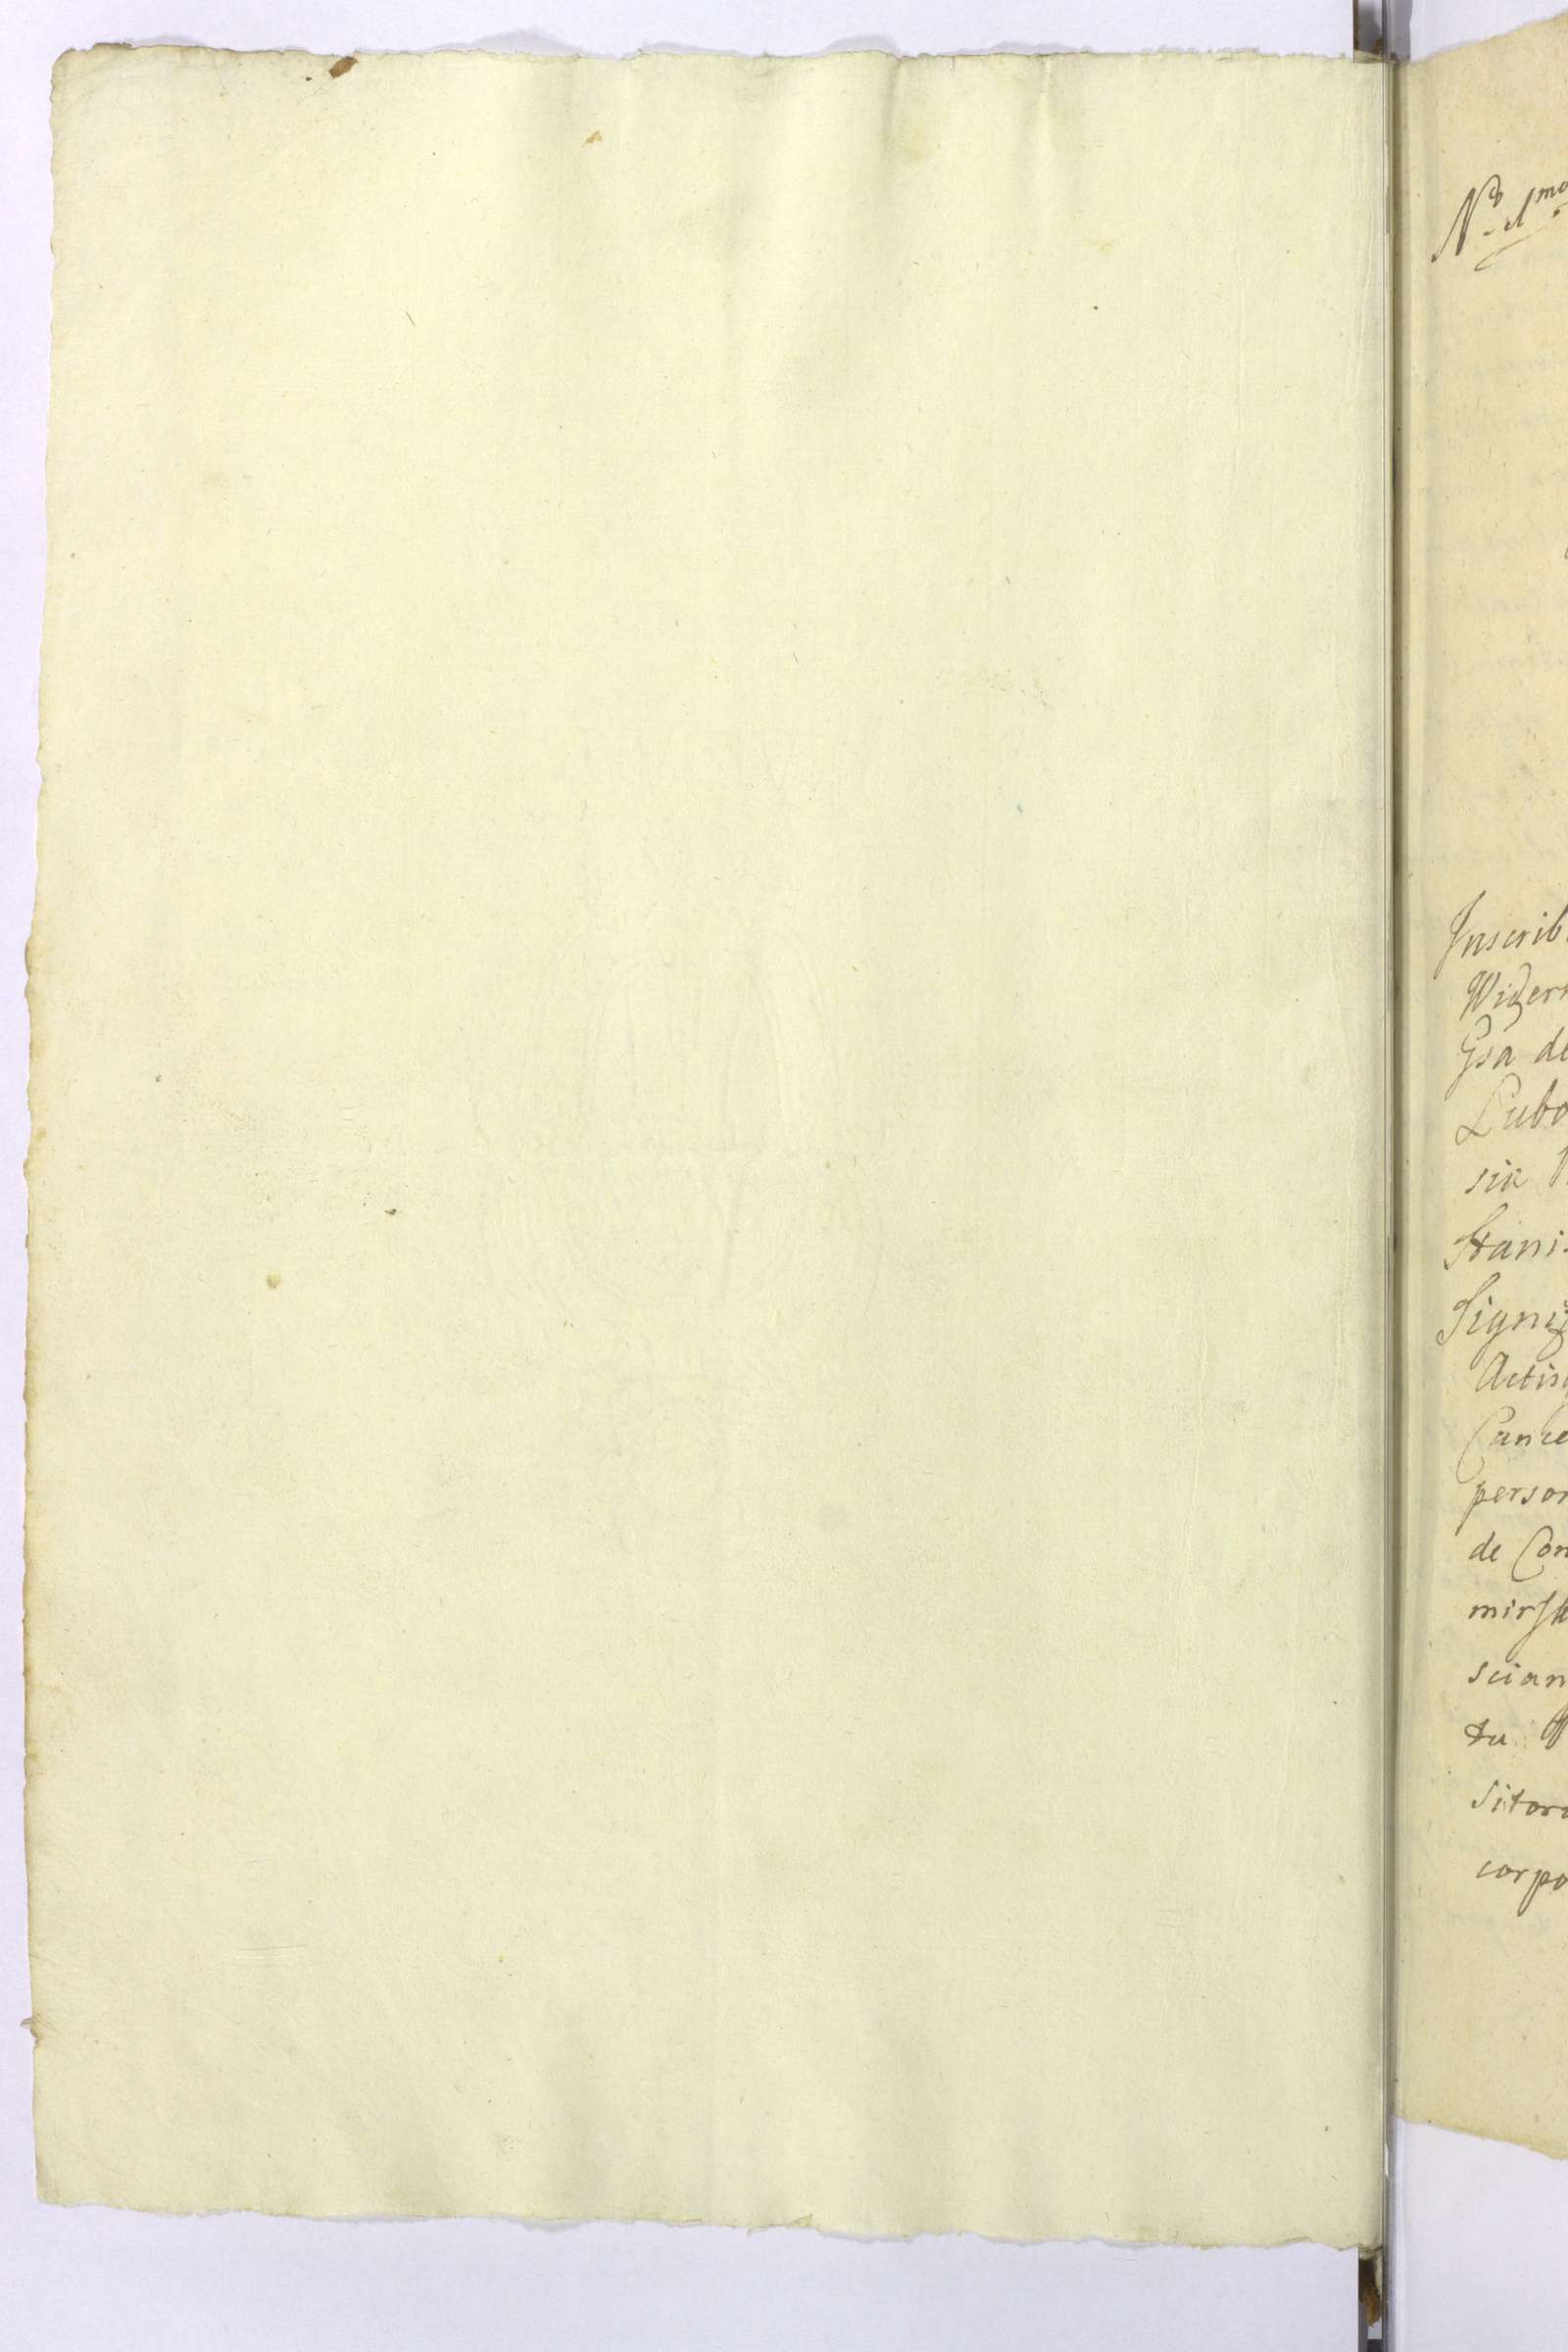 No. 1mo
Inscrib
Gsa de
Lubo
sia
Stani
Signi
Actis
Cance
person
de Con
mirsk
scian
tu
sitor
corpo